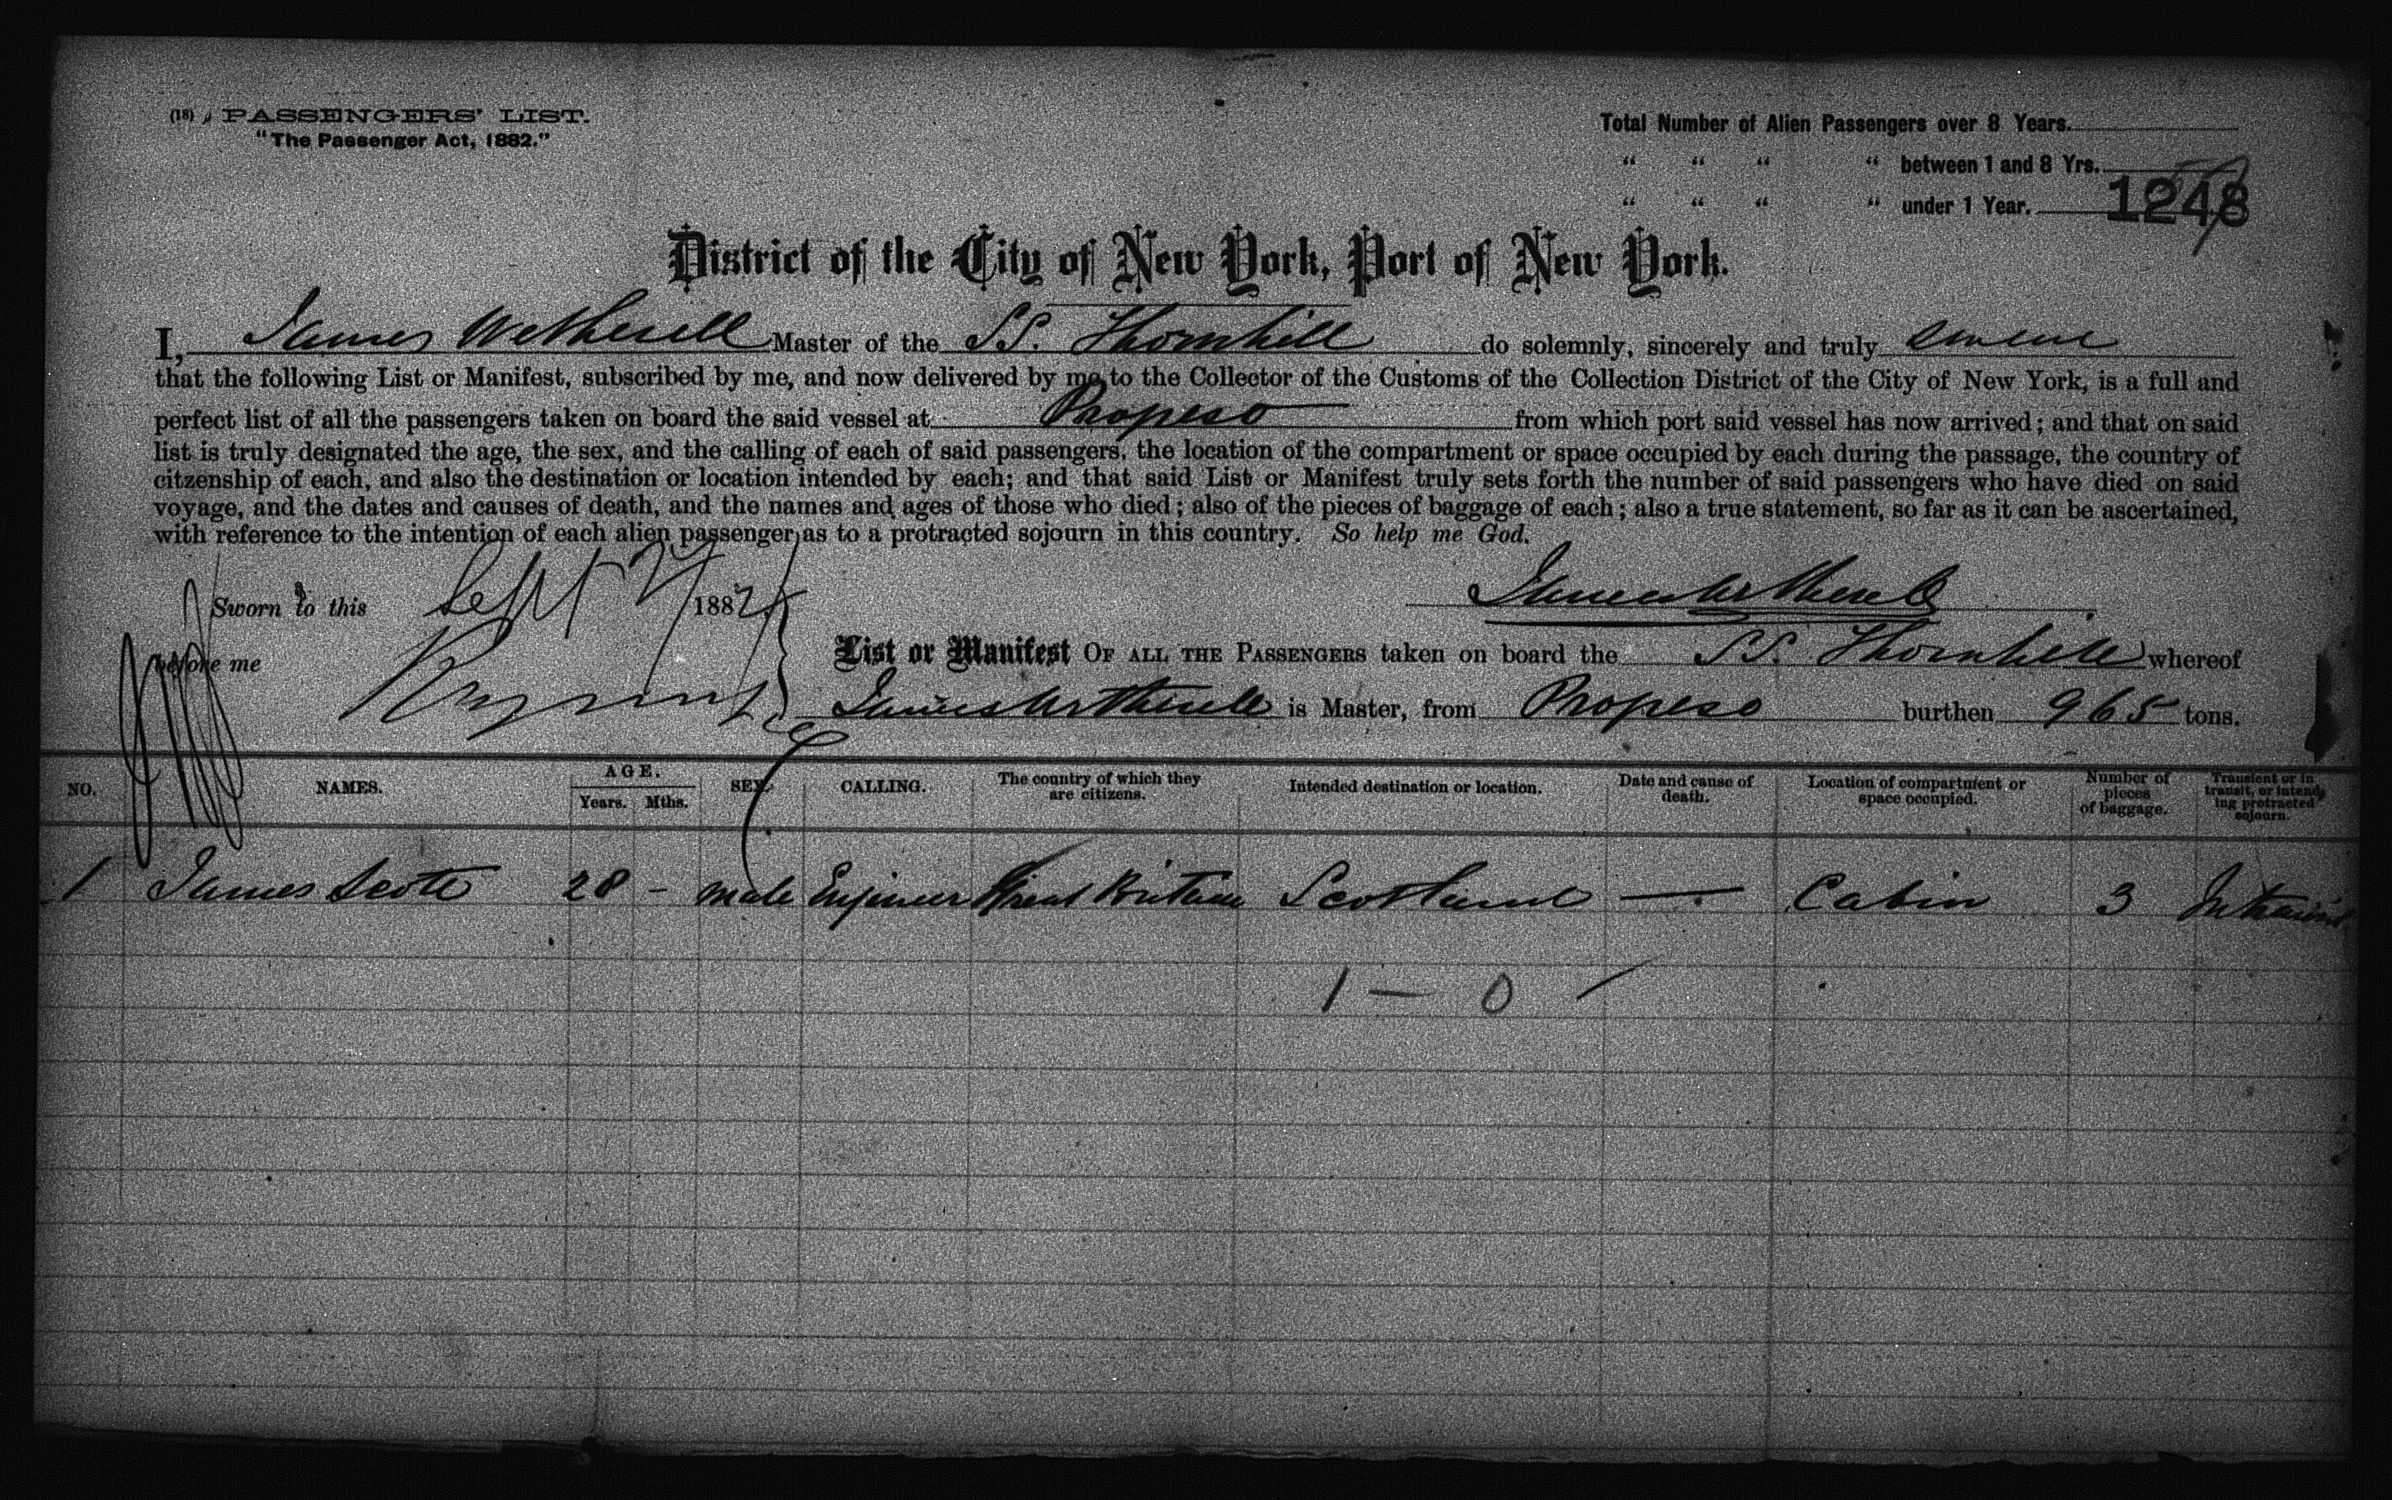 (18) PASSENGERS' LIST.
"The Passenger Act, 1882."
Total Number of Alien Passengers over 8 Years.
" " " " between 1 and 8 Yrs.
" " " " under 1 Year. 1248
District of the City of New York, Port of New York.
I, James Wetherell Master of the SS. Thornhill do solemnly, sincerely and truly swear
that the following List or Manifest, subscribed by me, and now delivered by me to the Collector of the Customs of the Collection District of the City of New York, is a full and
perfect list of all the passengers taken on board the said vessel at Propeso from which port said vessel has now arrived; and that on said
list is truly designated the age, the sex, and the calling of each of said passengers, the location of the compartment or space occupied by each during the passage, the country of
citzenship of each, and also the destination or location intended by each; and that said List or Manifest truly sets forth the number of said passengers who have died on said
voyage, and the dates and causes of death, and the names and ages of those who died; also of the pieces of baggage of each; also a true statement, so far as it can be ascertained,
with reference to the intention of each alien passenger as to a protracted sojourn in this country. So help me God.
Sworn to this Sept 1882
James Wetherell
before me
List or Manifest OF ALL THE PASSENGERS taken on board the SS. Thornhill whereof
James Wetherell is Master, from Propeso burthen 965 tons.
NO. NAMES. AGE. Years. Mths. SEX. CALLING. The country of which they are citizens. Intended destination or location. Date and cause of death. Location of compartment or space occupied. Number of pieces of baggage. Transient or in transit, or intending protracted sojourn.
1 James Scott 28 - male Engineer Great Britain Scotland — Cabin 3 In transit
1 — 0